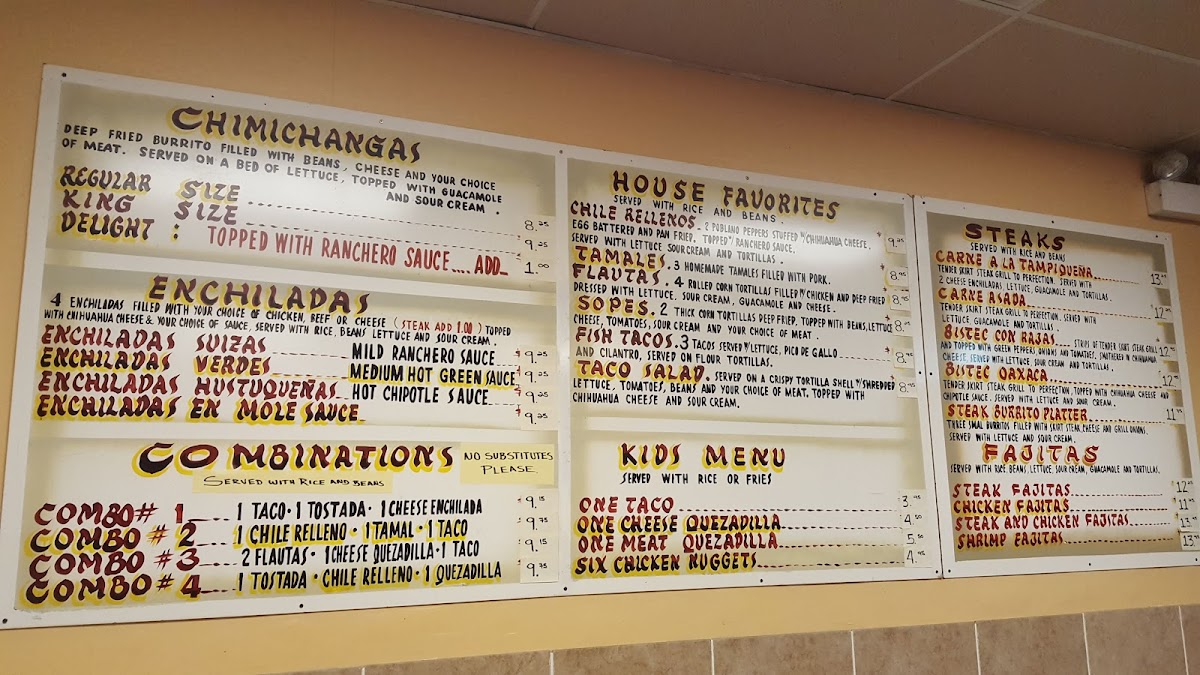 CHIMICHANGAS
DEEP FRIED BURRITO FILLED WITH BEANS, CHEESE AND YOUR CHOICE
OF MEAT. SERVED ON A BED OF LETTUCE, TOPPED WITH GUACAMOLE
AND SOUR CREAM.
REGULAR SIZE 8.25
KING SIZE 9.25
DELIGHT: TOPPED WITH RANCHERO SAUCE.... ADD 1.00
ENCHILADAS
4 ENCHILADAS FILLED WITH YOUR CHOICE OF CHICKEN, BEEF OR CHEESE (STEAK ADD 1.00) TOPPED
WITH CHIHUAHUA CHEESE & YOUR CHOICE OF SAUCE, SERVED WITH RICE, BEANS LETTUCE AND SOUR CREAM.
ENCHILADAS SUIZAS MILD RANCHERO SAUCE $9.25
ENCHILADAS VERDES MEDIUM HOT GREEN SAUCE $9.25
ENCHILADAS HUSTUQUEÑAS HOT CHIPOTLE SAUCE $9.25
ENCHILADAS EN MOLE SAUCE $9.25
COMBINATIONS
NO SUBSTITUTES
PLEASE.
SERVED WITH RICE AND BEANS
COMBO # 1 1 TACO • 1 TOSTADA • 1 CHEESE ENCHILADA $9.15
COMBO # 2 1 CHILE RELLENO • 1 TAMAL • 1 TACO $9.75
COMBO # 3 2 FLAUTAS • 1 CHEESE QUEZADILLA • 1 TACO $9.15
COMBO # 4 1 TOSTADA • CHILE RELLENO • 1 QUEZADILLA $9.75
HOUSE FAVORITES
SERVED WITH RICE AND BEANS
CHILE RELLENOS. 2 POBLANO PEPPERS STUFFED W/CHIHUAHUA CHEESE, 9.25
EGG BATTERED AND PAN FRIED. TOPPED W/ RANCHERO SAUCE.
SERVED WITH LETTUCE SOUR CREAM AND TORTILLAS.
TAMALES. 3 HOMEMADE TAMALES FILLED WITH PORK. 8.95
FLAUTAS. 4 ROLLED CORN TORTILLAS FILLED W/ CHICKEN AND DEEP FRIED
DRESSED WITH LETTUCE, SOUR CREAM, GUACAMOLE AND CHEESE. 8.95
SOPES. 2 THICK CORN TORTILLAS DEEP FRIED, TOPPED WITH BEANS, LETTUCE
CHEESE, TOMATOES, SOUR CREAM AND YOUR CHOICE OF MEAT. 8.95
FISH TACOS. 3 TACOS SERVED W/ LETTUCE, PICO DE GALLO
AND CILANTRO, SERVED ON FLOUR TORTILLAS. 8.95
TACO SALAD. SERVED ON A CRISPY TORTILLA SHELL W/ SHREDDED
LETTUCE, TOMATOES, BEANS AND YOUR CHOICE OF MEAT. TOPPED WITH 8.95
CHIHUAHUA CHEESE AND SOUR CREAM.
KIDS MENU
SERVED WITH RICE OR FRIES
ONE TACO 3.95
ONE CHEESE QUEZADILLA 4.50
ONE MEAT QUEZADILLA 5.50
SIX CHICKEN NUGGETS 4.95
STEAKS
SERVED WITH RICE AND BEANS
CARNE A LA TAMPIQUEÑA 13.95
TENDER SKIRT STEAK GRILL TO PERFECTION. SERVED WITH
2 CHEESE ENCHILADAS, LETTUCE, GUACAMOLE AND TORTILLAS.
CARNE ASADA 12.95
TENDER SKIRT STEAK GRILL TO PERFECTION. SERVED WITH
LETTUCE, GUACAMOLE AND TORTILLAS.
BISTEC CON RAJAS STRIPS OF TENDER SKIRT STEAK GRILL
AND TOPPED WITH GREEN PEPPERS, ONIONS AND TOMATOES, SMOTHERED W/ CHIHUAHUA
CHEESE, SERVED WITH LETTUCE, SOUR CREAM AND TORTILLAS.
BISTEC OAXACA
TENDER SKIRT STEAK GRILL TO PERFECTION, TOPPED WITH CHIHUAHUA CHEESE AND
CHIPOTLE SAUCE. SERVED WITH LETTUCE AND SOUR CREAM.
STEAK BURRITO PLATTER
THREE SMAL BURRITOS FILLED WITH SKIRT STEAK, CHEESE AND GRILL ONIONS.
SERVED WITH LETTUCE AND SOUR CREAM.
FAJITAS
SERVED WITH RICE, BEANS, LETTUCE, SOUR CREAM, GUACAMOLE AND TORTILLAS.
STEAK FAJITAS
CHICKEN FAJITAS
STEAK AND CHICKEN FAJITAS
SHRIMP FAJITAS